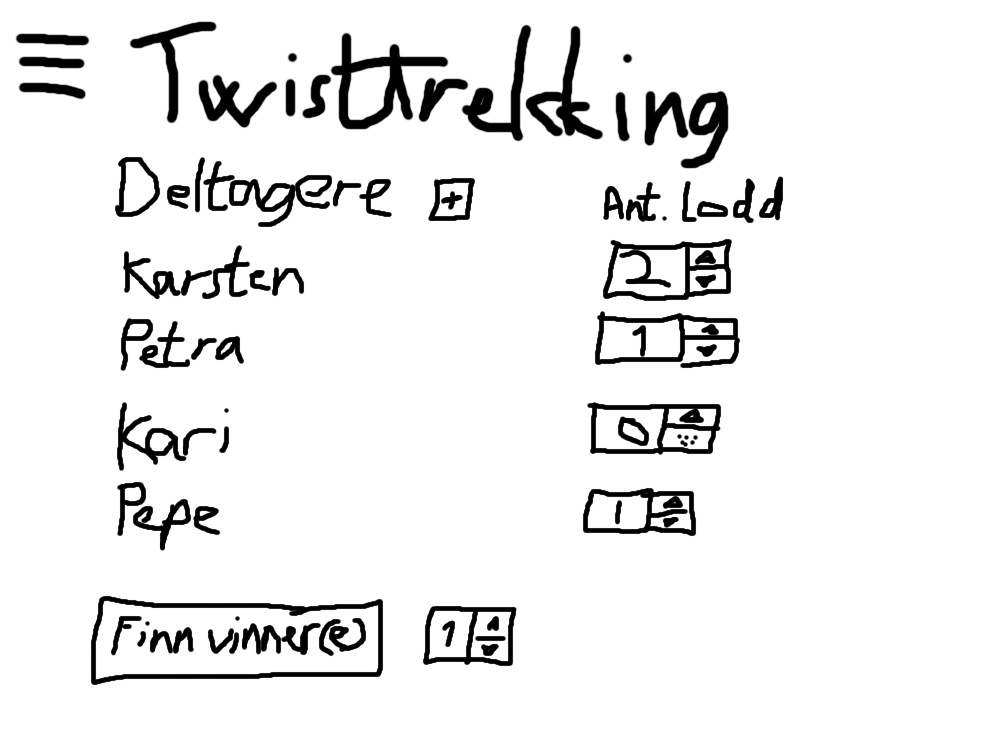 Twisttrekking
Deltagere + Ant. Lodd
Karsten 2
Petra 1
Kari 0
Pepe 1
Finn vinner(e) 1